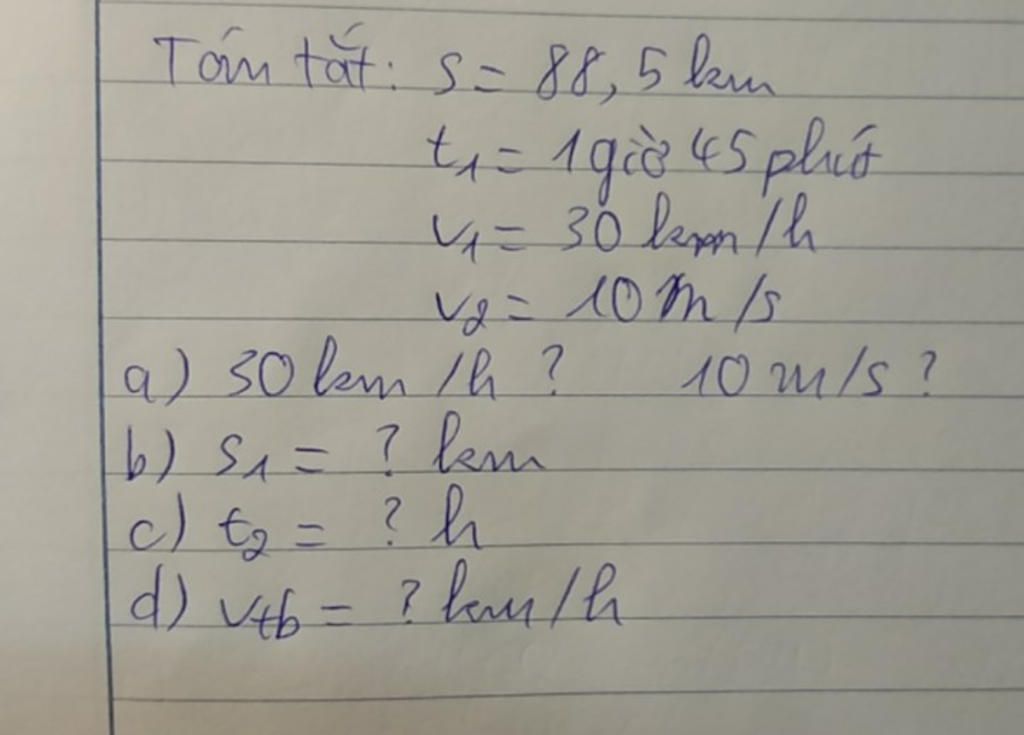 Tóm tắt: s = 88,5 km
t1 = 1 giờ 45 phút
v1 = 30 km/h
v2 = 10 m/s
a) 30 km/h ? 10 m/s ?
b) s1 = ? km
c) t2 = ? h
d) vtb = ? km/h